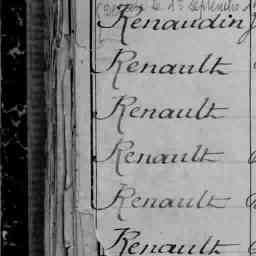 le 1er septembre
Renaudin
Renault
Renault
Renault
Renault
Renault